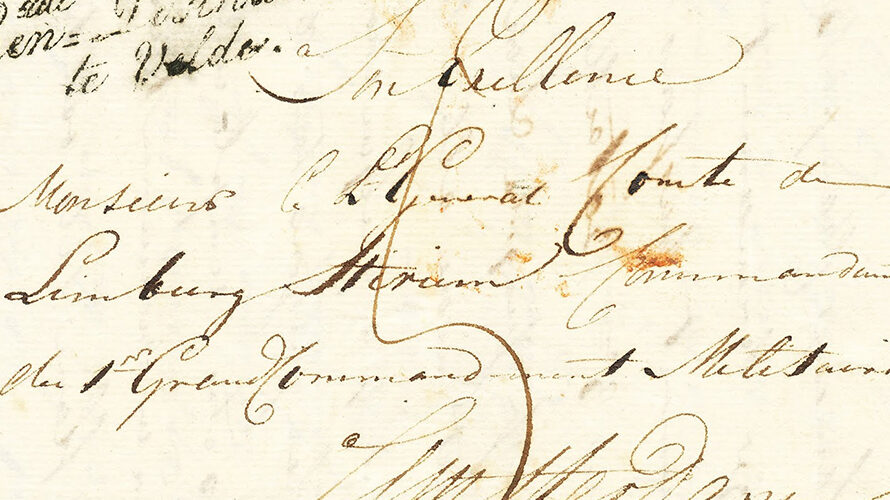 en=
te Velde.
a Son Excellence
Monsieur le Lt General Comte de
Limburg Stirum Commandan
du 1er Grand Commandement Militair